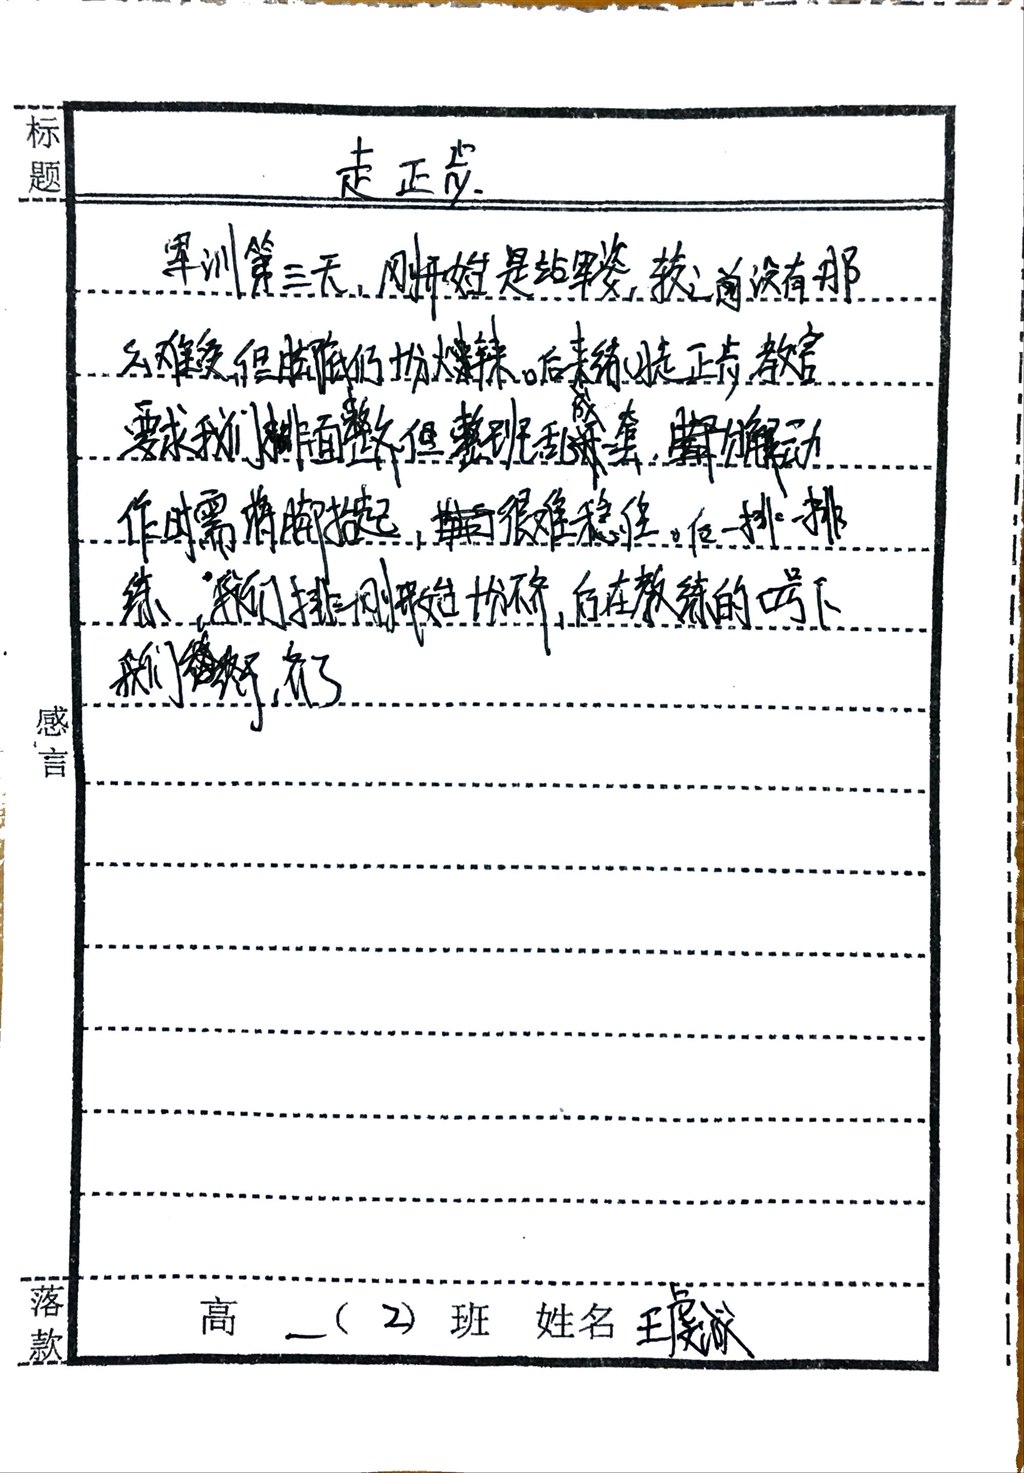 标题
走正步.
军训第三天,刚开始是站军姿,较之前没有那
么难受,但脚底仍十分火辣辣。后来练习走正步,教官
要求我们排面整齐,但整班乱成一套,分解动
作时需将脚抬起,很难稳住。后一排一排
练、我们排三刚开始十分不齐,后在教练的口号下
我们终于,齐了
感言
落款
高 一 ( 2 ) 班 姓名 王